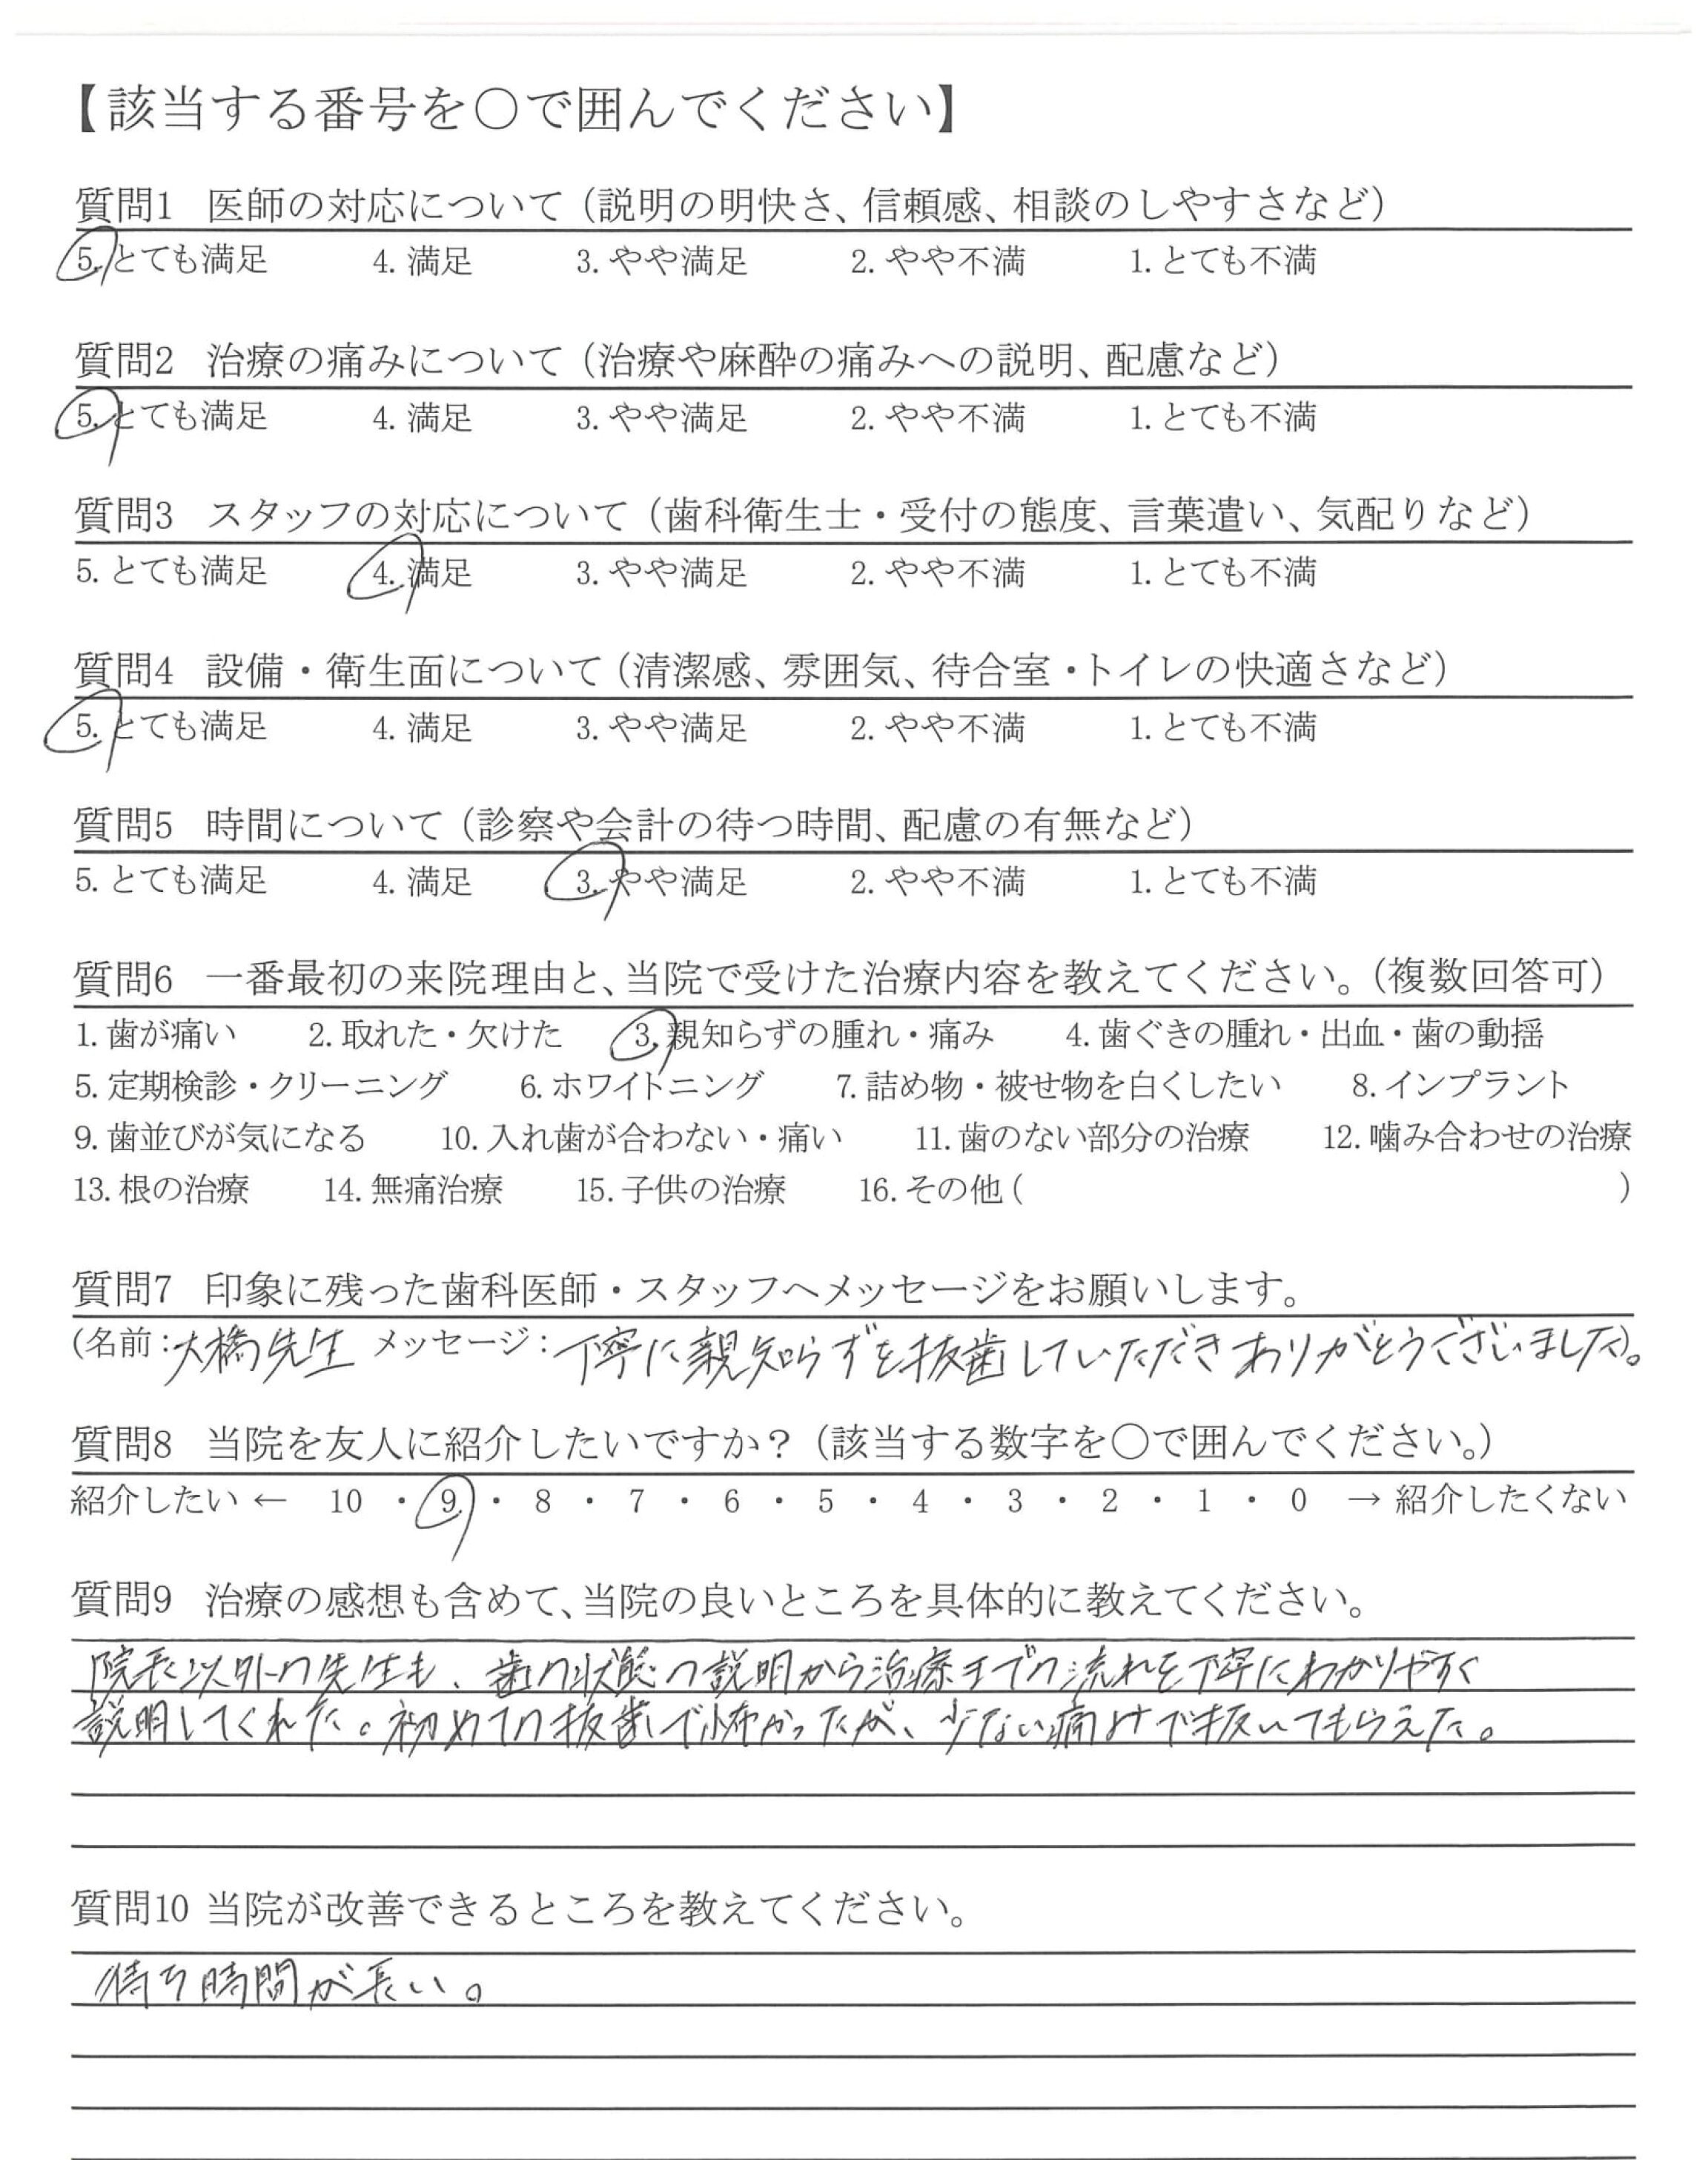 【該当する番号を○で囲んでください】
質問1 医師の対応について（説明の明快さ、信頼感、相談のしやすさなど）
5. とても満足 4. 満足 3. やや満足 2. やや不満 1. とても不満
質問2 治療の痛みについて（治療や麻酔の痛みへの説明、配慮など）
5. とても満足 4. 満足 3. やや満足 2. やや不満 1. とても不満
質問3 スタッフの対応について（歯科衛生士・受付の態度、言葉遣い、気配りなど）
5. とても満足 4. 満足 3. やや満足 2. やや不満 1. とても不満
質問4 設備・衛生面について（清潔感、雰囲気、待合室・トイレの快適さなど）
5. とても満足 4. 満足 3. やや満足 2. やや不満 1. とても不満
質問5 時間について（診察や会計の待つ時間、配慮の有無など）
5. とても満足 4. 満足 3. やや満足 2. やや不満 1. とても不満
質問6 一番最初の来院理由と、当院で受けた治療内容を教えてください。（複数回答可）
1. 歯が痛い 2. 取れた・欠けた 3. 親知らずの腫れ・痛み 4. 歯ぐきの腫れ・出血・歯の動揺
5. 定期検診・クリーニング 6. ホワイトニング 7. 詰め物・被せ物を白くしたい 8. インプラント
9. 歯並びが気になる 10. 入れ歯が合わない・痛い 11. 歯のない部分の治療 12. 噛み合わせの治療
13. 根の治療 14. 無痛治療 15. 子供の治療 16. その他（ ）
質問7 印象に残った歯科医師・スタッフへメッセージをお願いします。
（名前：大橋先生 メッセージ：丁寧に親知らずを抜歯していただきありがとうございました）。
質問8 当院を友人に紹介したいですか？（該当する数字を○で囲んでください。）
紹介したい ← 10 ・ 9 ・ 8 ・ 7 ・ 6 ・ 5 ・ 4 ・ 3 ・ 2 ・ 1 ・ 0 → 紹介したくない
質問9 治療の感想も含めて、当院の良いところを具体的に教えてください。
院長以外の先生も、歯の状態の説明から治療までの流れを丁寧にわかりやすく
説明してくれた。初めての抜歯で怖かったが、少ない痛みで抜いてもらえた。
質問10 当院が改善できるところを教えてください。
待ち時間が長い。